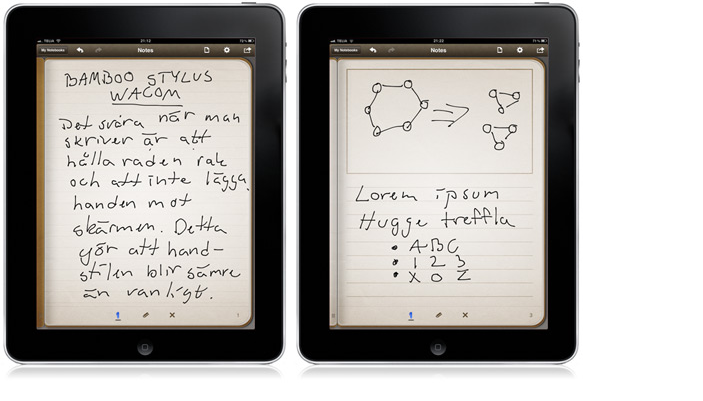 TELIA
21:12
My Notebooks
Notes
BAMBOO STYLUS
WACOM
Det svåra när man
skriver är att
hålla raden rak
och att inte lägga
handen mot
skärmen. Detta
gör att hand-
stilen blir sämre
än vanligt.
1
TELIA
21:22
My Notebooks
Notes
Lorem ipsum
Hugge treffla
• ABC
• 1 2 3
• X O Z
2